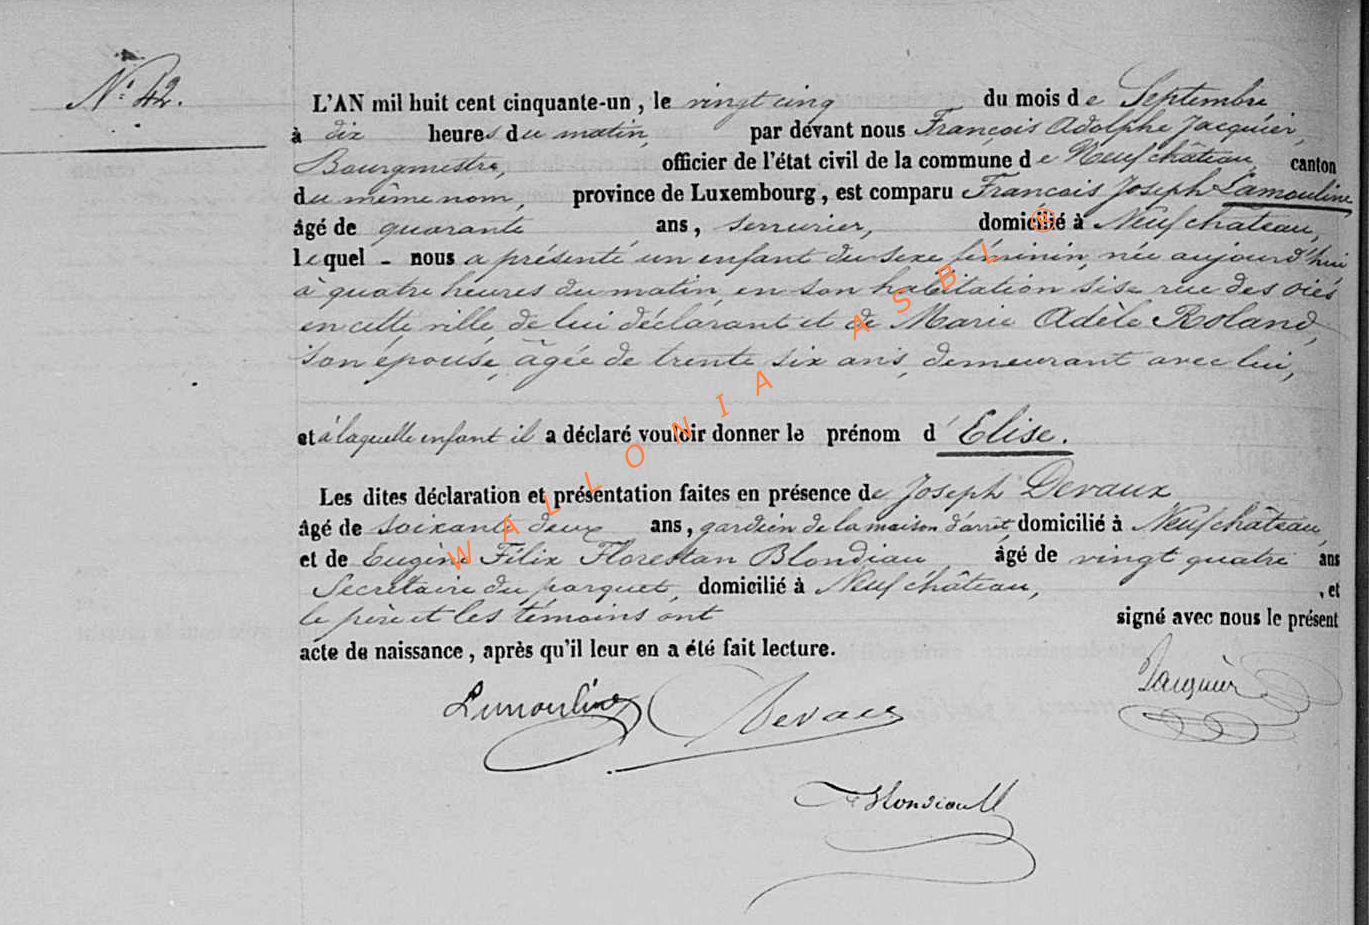 N.° 42.
L'AN mil huit cent cinquante-un, le vingt cinq du mois de Septembre
à dix heures du matin, par devant nous François Adolphe Jacquier,
Bourgmestre, officier de l'état civil de la commune de Neufchâteau, canton
du même nom, province de Luxembourg, est comparu François Joseph Lamouline
âgé de quarante ans, serrurier, domicilié à Neufchateau,
lequel - nous a présenté un enfant du sexe féminin, née aujourd'hui
à quatre heures du matin en son habitation sise rue des oies
en cette ville, de lui déclarant et de Marie Adèle Roland,
son épouse, âgée de trente six ans, demeurant avec lui,
et à laquelle enfant il a déclaré vouloir donner le prénom d'Elise.
Les dites déclaration et présentation faites en présence de Joseph Devaux
âgé de soixante deux ans, gardien de la maison d'arrêt, domicilié à Neufchâteau,
et de Eugène Félix Florestan Blondiau âgé de vingt quatre ans
Secrétaire du parquet, domicilié à Neufchâteau, , et
le père et les témoins ont signé avec nous le présent
acte de naissance, après qu'il leur en a été fait lecture.
Lamouline Devaux Jacquier
WALLONIA ASBL ®